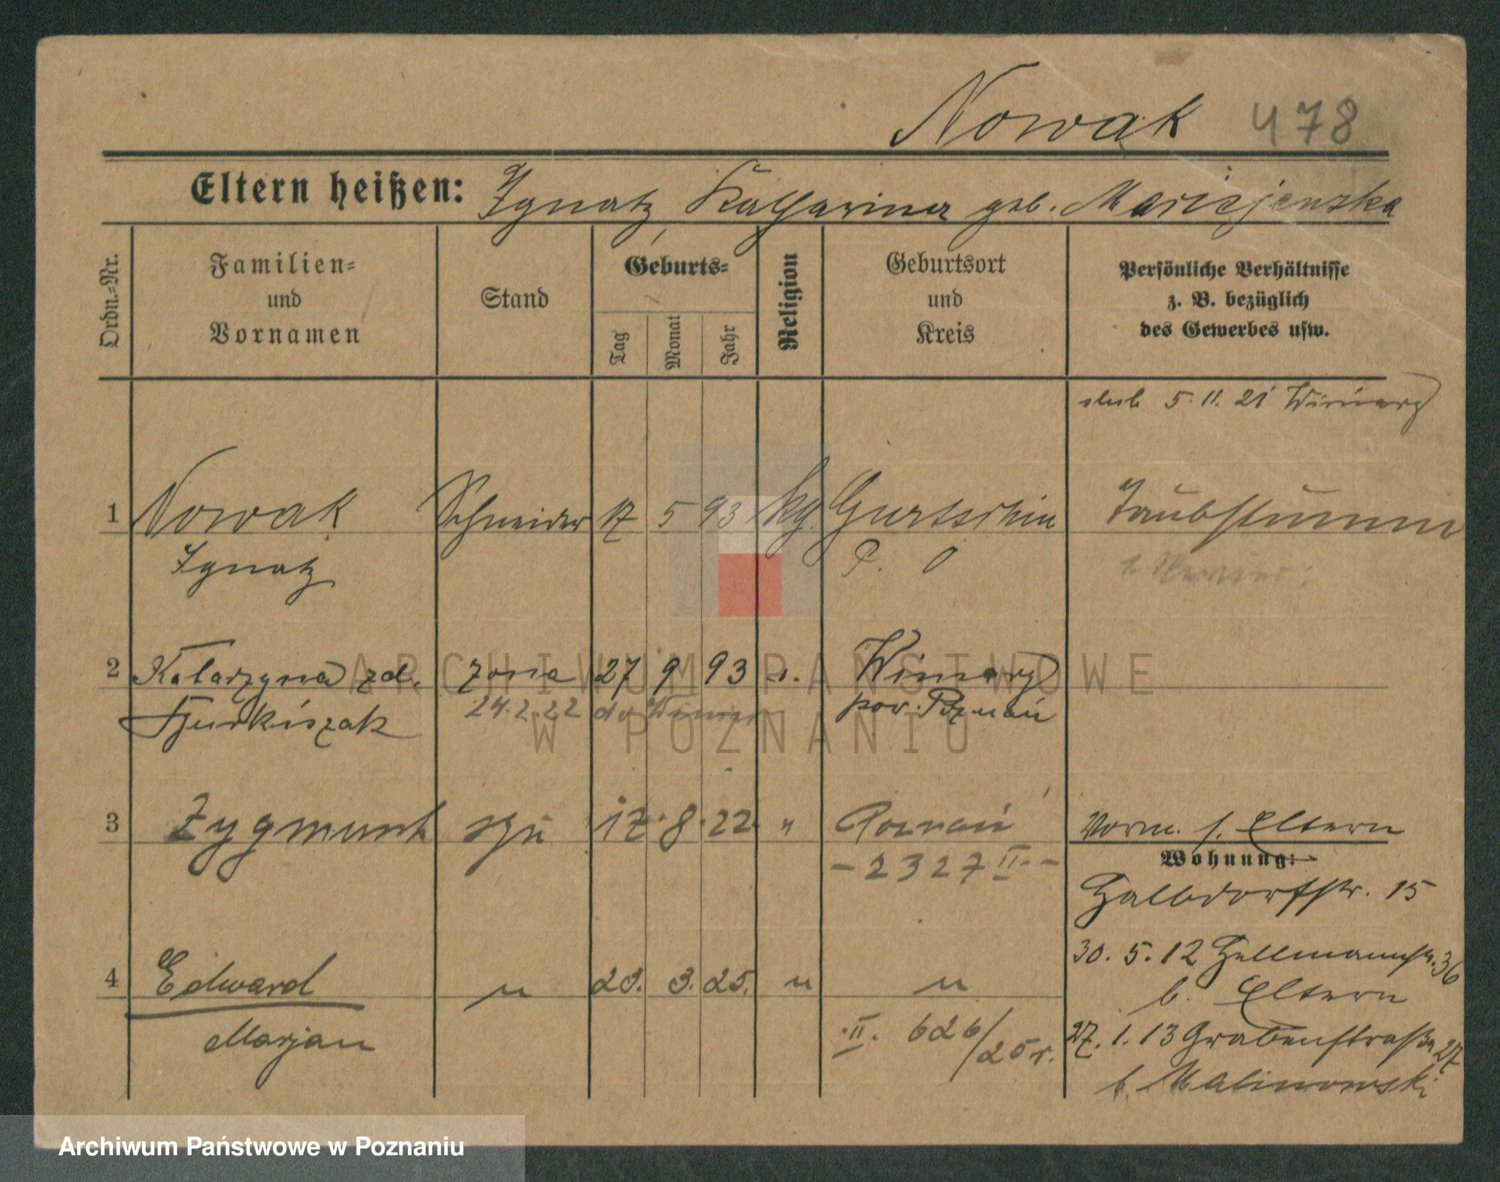 Nowak 478
Eltern heißen: Ignatz, Katharina geb. Maciejewska
Ordn.-Nr.
Familien-
und
Vornamen
Stand
Geburts-
Tag
Monat
Jahr
Religion
Geburtsort
und
Kreis
Persönliche Verhältnisse
z. B. bezüglich
des Gewerbes usw.
ślub 5.11.21 Winiary
1 Nowak Schneider 17 5 93 kg. Gurtschin Taubstumm
Ignatz P. O
2 Katarzyna zd. żona 27 9 93 Winiary
24.2.22 pow. Poznań
3 Zygmunt syn 17. 8. 22 " Poznań Vorm. s. Eltern
- 2327 II. -
Wohnung:
15
4 Edward " 23. 3. 25. " " 30. 5. 12 Hellmannstr. 36
b. Eltern
Marjan II. 626/25 r. 27. 1. 13 Grabenstraße 27
b. Malinowski
ARCHIWUM PAŃSTWOWE
W POZNANIU
Archiwum Państwowe w Poznaniu